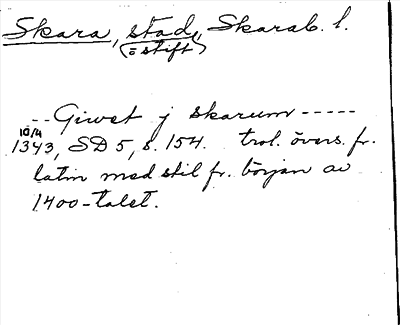 Skara, stad, Skarab. l.
(= stift)
-- Giwet j skarum -----
10/4
1343, SD 5, s. 154. trol. övers. fr.
latin med stil fr. början av
1400-talet.